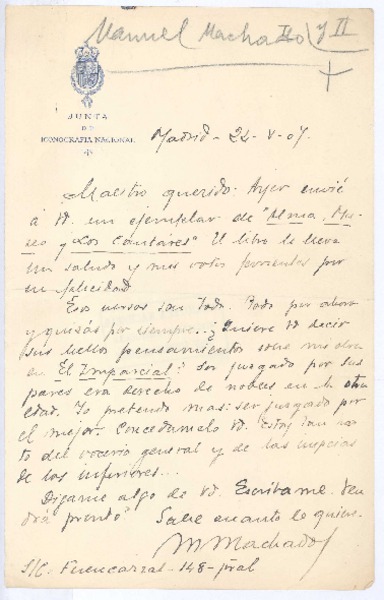 Manuel Machado y II
JUNTA
DE
ICONOGRAFIA NACIONAL
Madrid - 24 - V - 07.
Maestro querido: Ayer envié
á Vd. un ejemplar de "Alma, Mu-
seo y Los Cantares" El libro le lleva
un saludo y mis votos por
su felicidad
Esos versos son todo. Todo por ahora
y quizás por siempre. ¿Quiere Vd decir
sus bellos pensamientos sobre mi obra
en El Imparcial? Ser juzgado por sus
pares era derecho de nobles en la otra
edad. Yo pretendo mas: ser juzgado por
el mejor. Concedamelo Vd. Estoy tan
to del vocerio general y de las inepcias
de los inferiores...
Digame algo de Vd. Escribame. Ven
drá pronto? Sabe cuanto lo quiere
M Machado
S/C. Fuencarral - 148 - pral